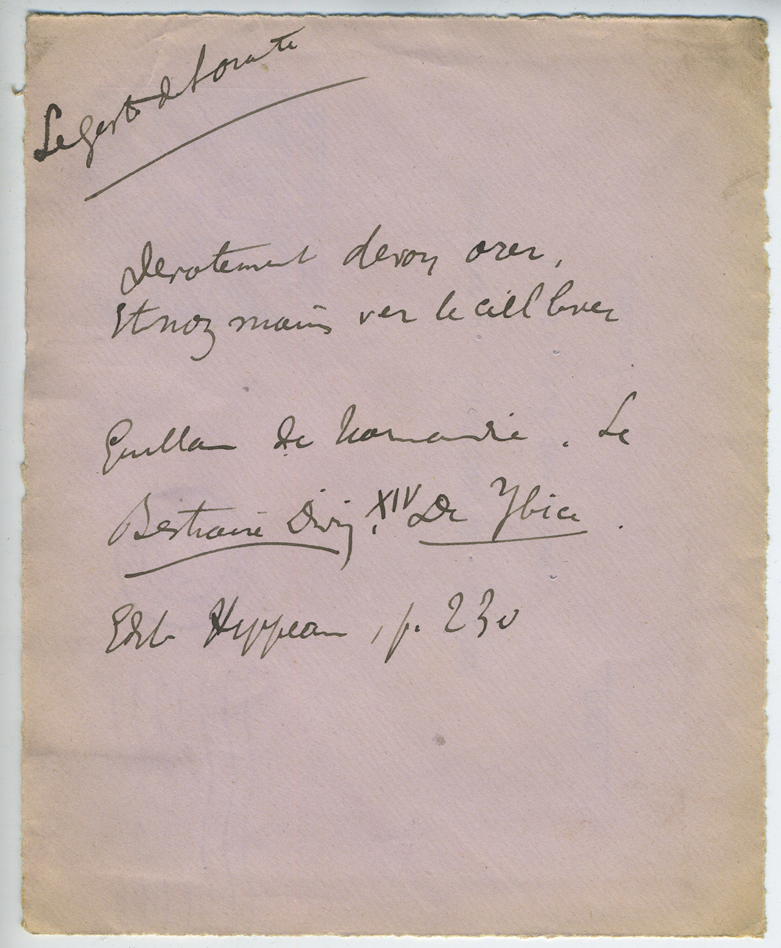 Le geste de l'orante
Devotement devon orer,
Et noz mains ver le ciell lever
Guillaume de Normandie. Le
Bestiaire Divin, XIV De Ybice.
Edit. Hippeau, p. 230